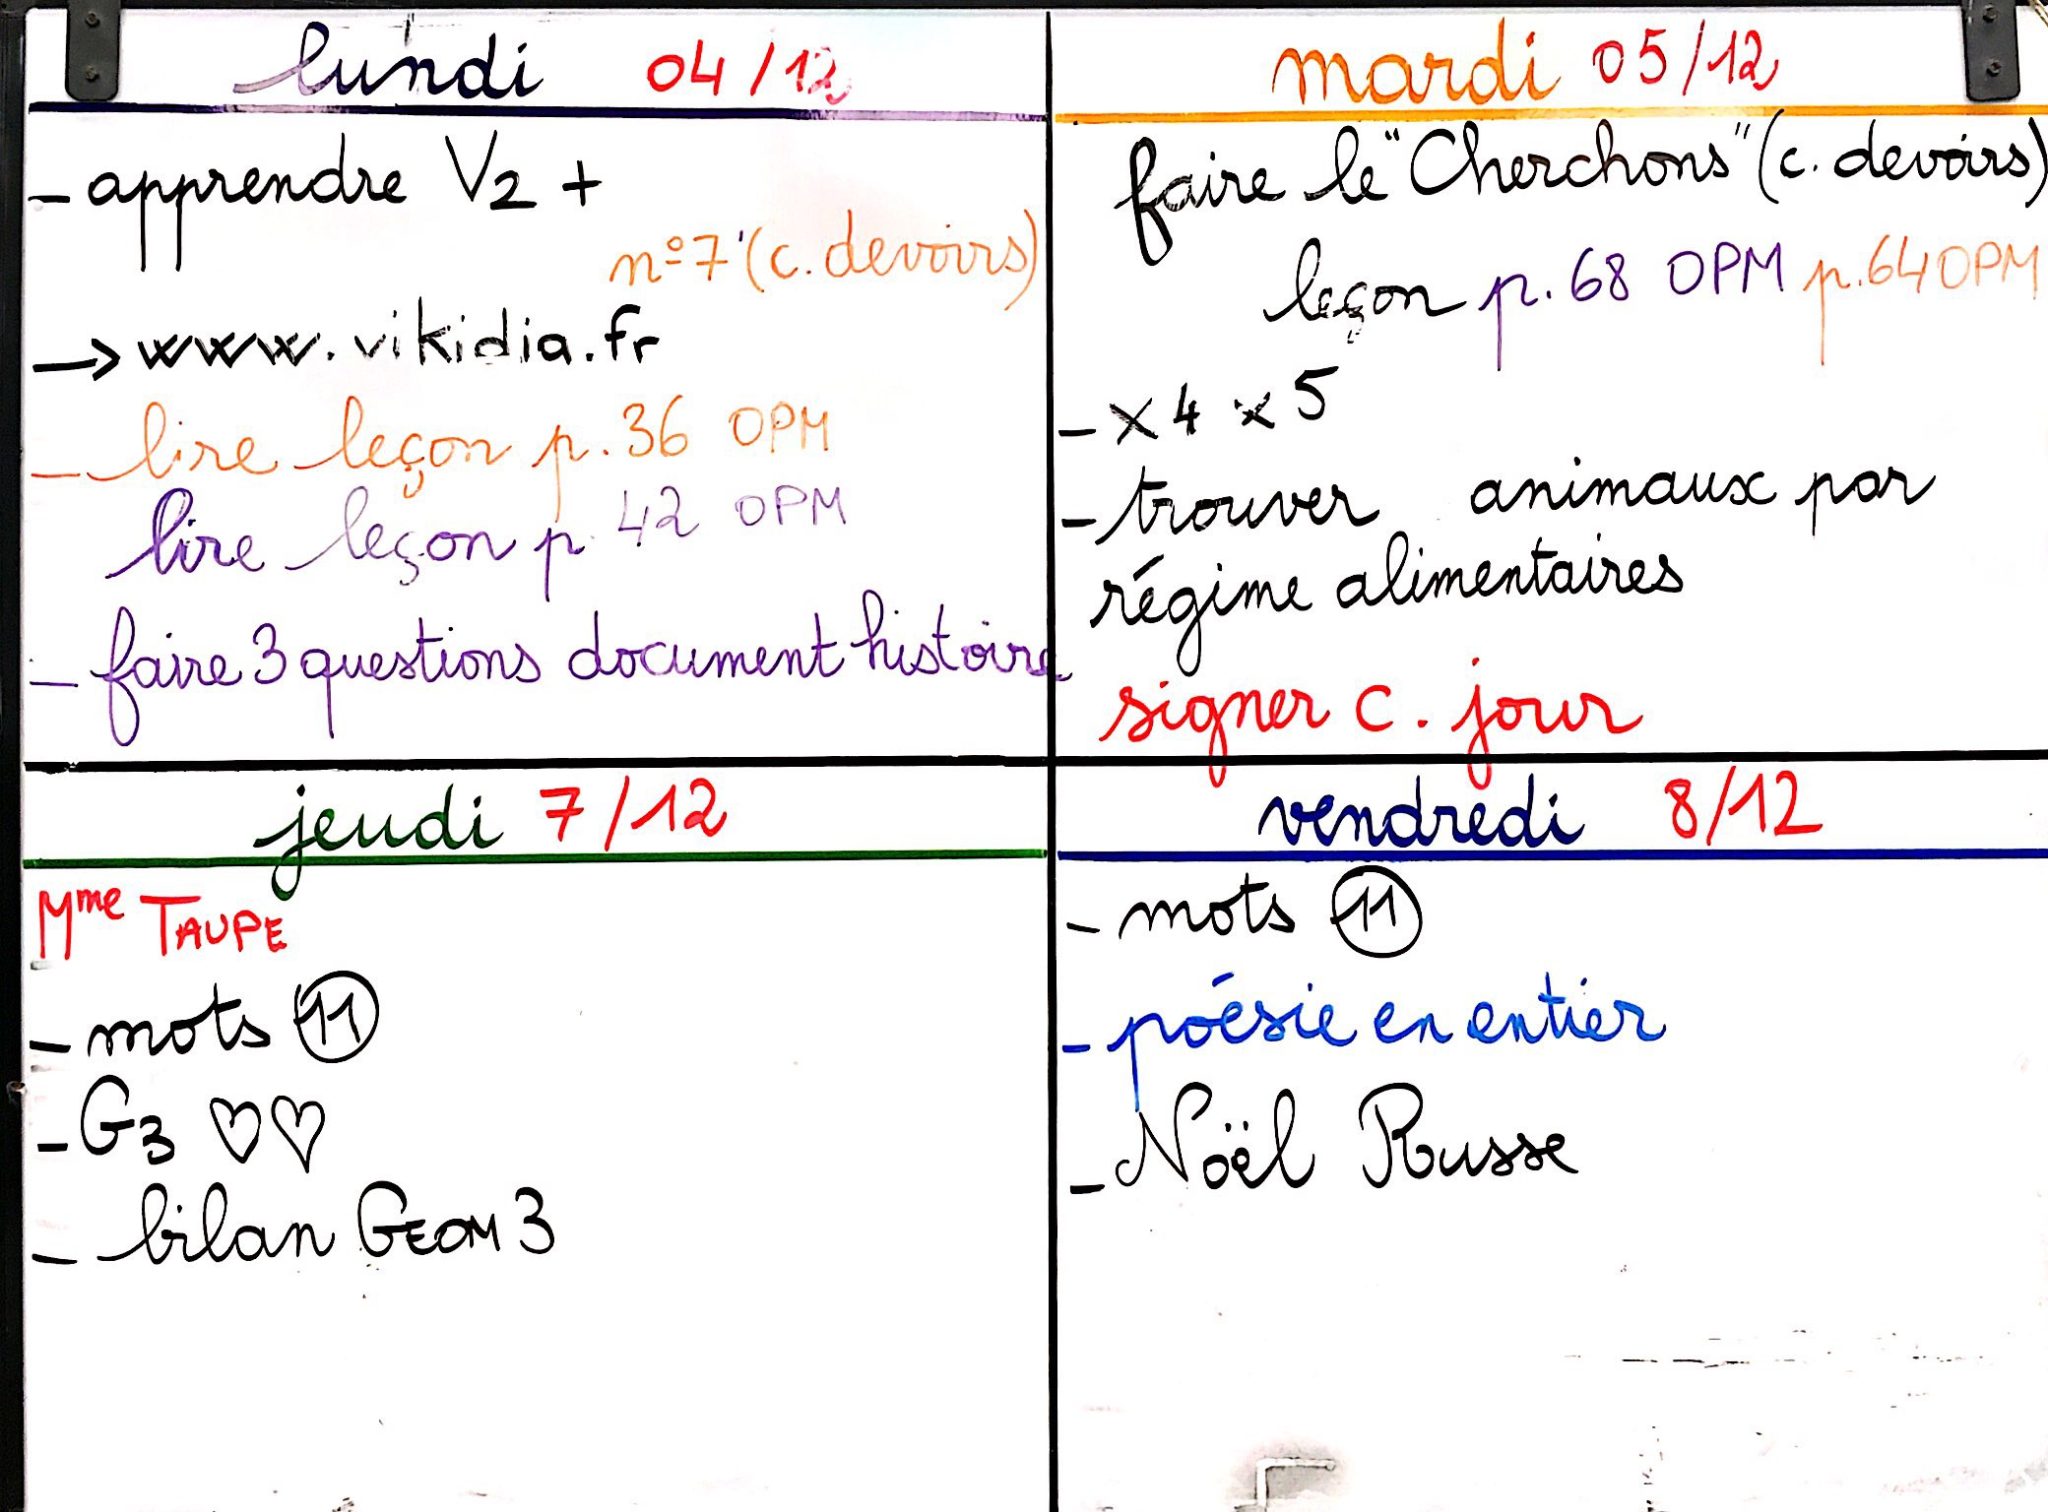 lundi 04/12
- apprendre V2 +
n°7 (c. devoirs)
→ www.vikidia.fr
- lire leçon p. 36 OPM
lire leçon p. 42 OPM
- faire 3 questions document histoire
mardi 05/12
faire le "Cherchons" (c. devoirs)
leçon p. 68 OPM p. 64 OPM
- x4 x5
- trouver animaux par
régime alimentaires
signer c. jour
jeudi 7/12
Mme TAUPE
- mots 11
- G3 ♡♡
- bilan GEOM 3
vendredi 8/12
- mots 11
- poésie en entier
- Noël Russe